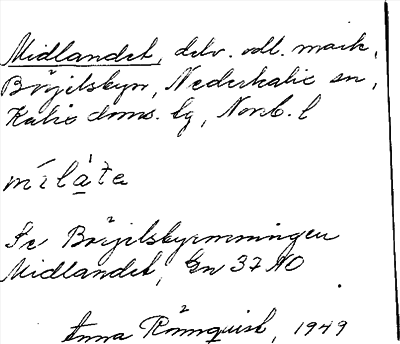 Midlandet, delv. odl. mark,
Börjelsbyn, Nederkalix sn,
Kalix doms. lg, Norrb. l
mílàte
Se Börjelsbyrmningen
Midlandet, Gn 37 NO
Anna Rönnquist, 1949